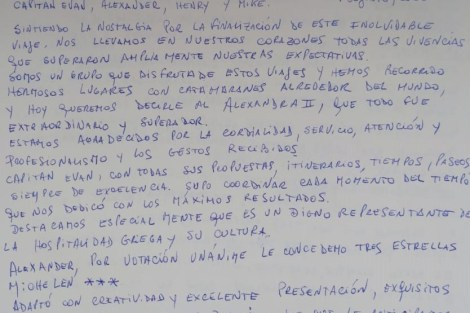 CAPITÁN EVAN, ALEXANDER, HENRY Y MIKE.
SINTIENDO LA NOSTALGIA POR LA FINALIZACIÓN DE ESTE INOLVIDABLE
VIAJE. NOS LLEVAMOS EN NUESTROS CORAZONES TODAS LAS VIVENCIAS
QUE SUPERARON AMPLIAMENTE NUESTRAS EXPECTATIVAS.
SOMOS UN GRUPO QUE DISFRUTA DE ESTOS VIAJES Y HEMOS RECORRIDO
HERMOSOS LUGARES CON CATAMARANES ALREDEDOR DEL MUNDO,
Y HOY QUEREMOS DECIRLE AL ALEXANDRA II, QUE TODO FUE
EXTRAORDINARIO Y SUPERADOR.
ESTAMOS AGRADECIDOS POR LA CORDIALIDAD, SERVICIO, ATENCIÓN Y
PROFESIONALISMO Y LOS GESTOS RECIBIDOS.
CAPITÁN EVAN, CON TODAS SUS PROPUESTAS, ITINERARIOS, TIEMPOS, PASEOS,
SIEMPRE DE EXCELENCIA. SUPO COORDINAR CADA MOMENTO DEL TIEMPO
QUE NOS DEDICÓ CON LOS MÁXIMOS RESULTADOS.
DESTACAMOS ESPECIALMENTE QUE ES UN DIGNO REPRESENTANTE DE
LA HOSPITALIDAD GREGA Y SU CULTURA.
ALEXANDER, POR VOTACIÓN UNÁNIME LE CONCEDEMO TRES ESTRELLAS
MICHELEN ***
ADAPTÓ CON CREATIVIDAD Y EXCELENTE PRESENTACIÓN, EXQUISITOS